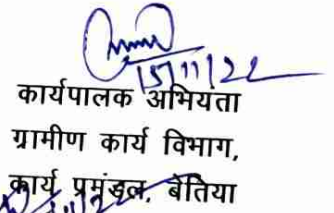 15/11/22
कार्यपालक अभियंता
ग्रामीण कार्य विभाग,
कार्य प्रमंडल, बेतिया